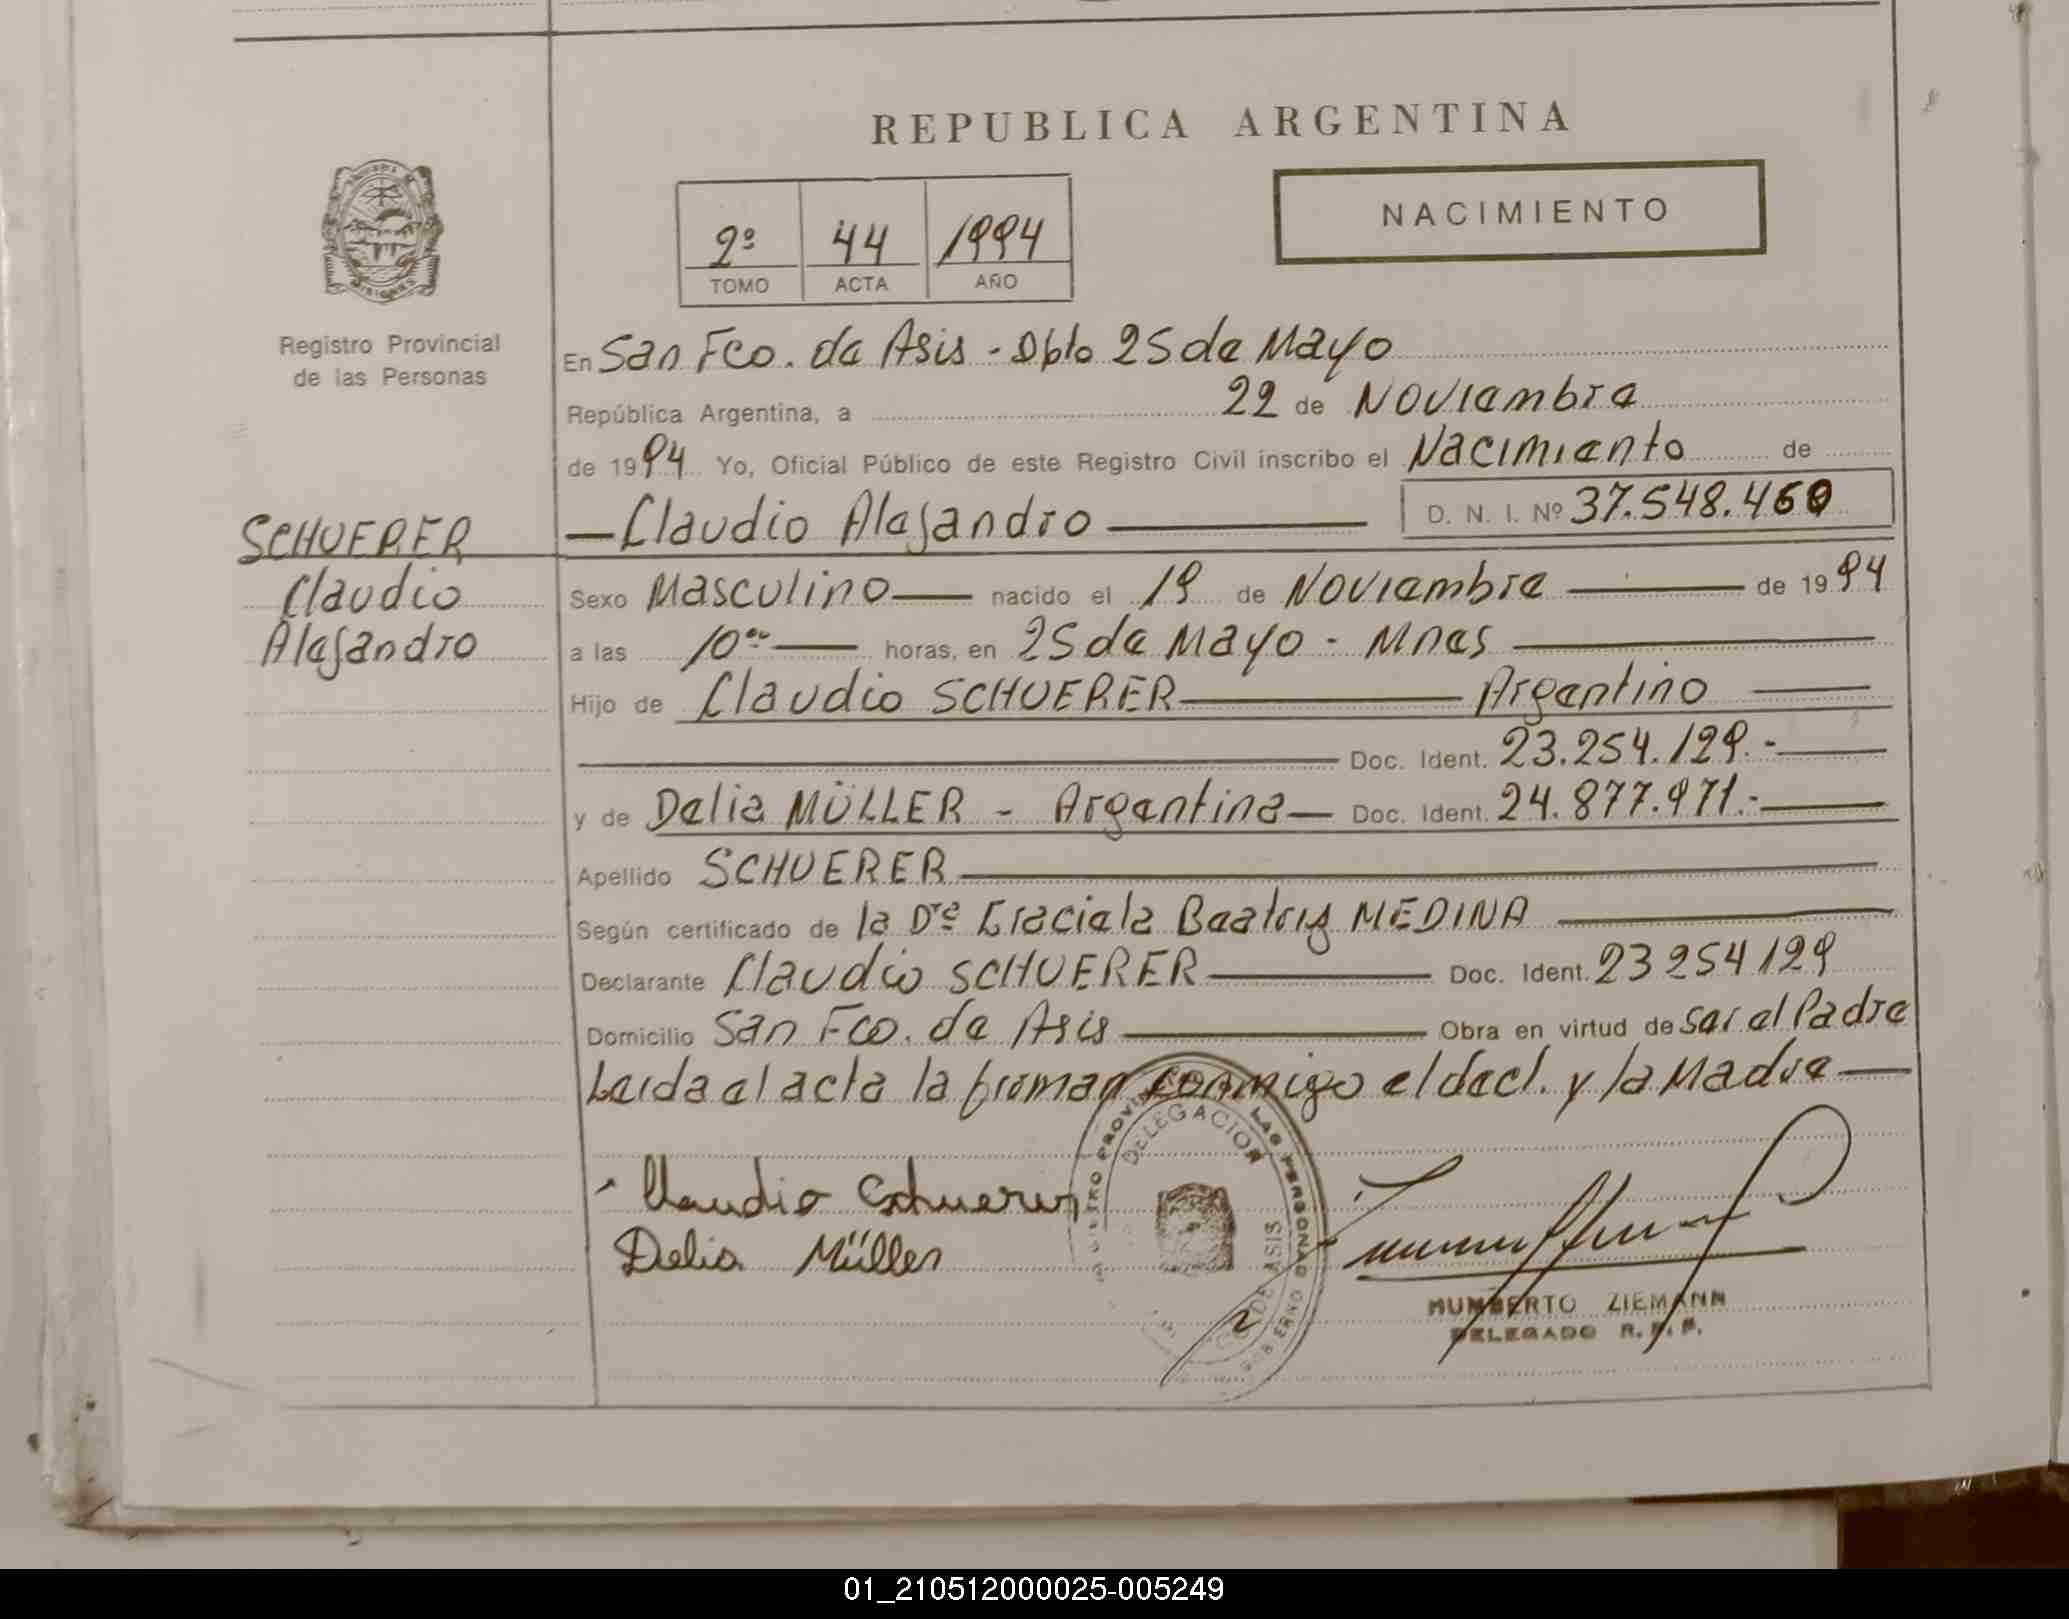 REPUBLICA ARGENTINA
NACIMIENTO
2º 44 1994
TOMO ACTA AÑO
Registro Provincial
de las Personas
En San Fco. de Asis - Dpto 25 de Mayo
República Argentina, a 22 de Noviembre
de 1994 Yo, Oficial Público de este Registro Civil inscribo el Nacimiento de
Claudio Alejandro D. N. I. Nº 37.548.460
SCHUERER
Claudio
Alejandro
Sexo Masculino nacido el 19 de Noviembre de 1994
a las 10 horas, en 25 de Mayo - Mnes
Hijo de Claudio SCHUERER Argentino
Doc. Ident. 23.254.129.-
y de Delia MÜLLER - Argentina Doc. Ident. 24.877.971.-
Apellido SCHUERER
Según certificado de la Dra Graciela Beatriz MEDINA
Declarante Claudio SCHUERER Doc. Ident. 23254129
Domicilio San Fco. de Asis Obra en virtud de Ser el Padre
Leida el acta la firman conmigo el decl. y la Madre
Claudio Schuerer
Delia Müller
DELEGACION
HUMBERTO ZIEMANN
DELEGADO R. P. P.
01_210512000025-005249